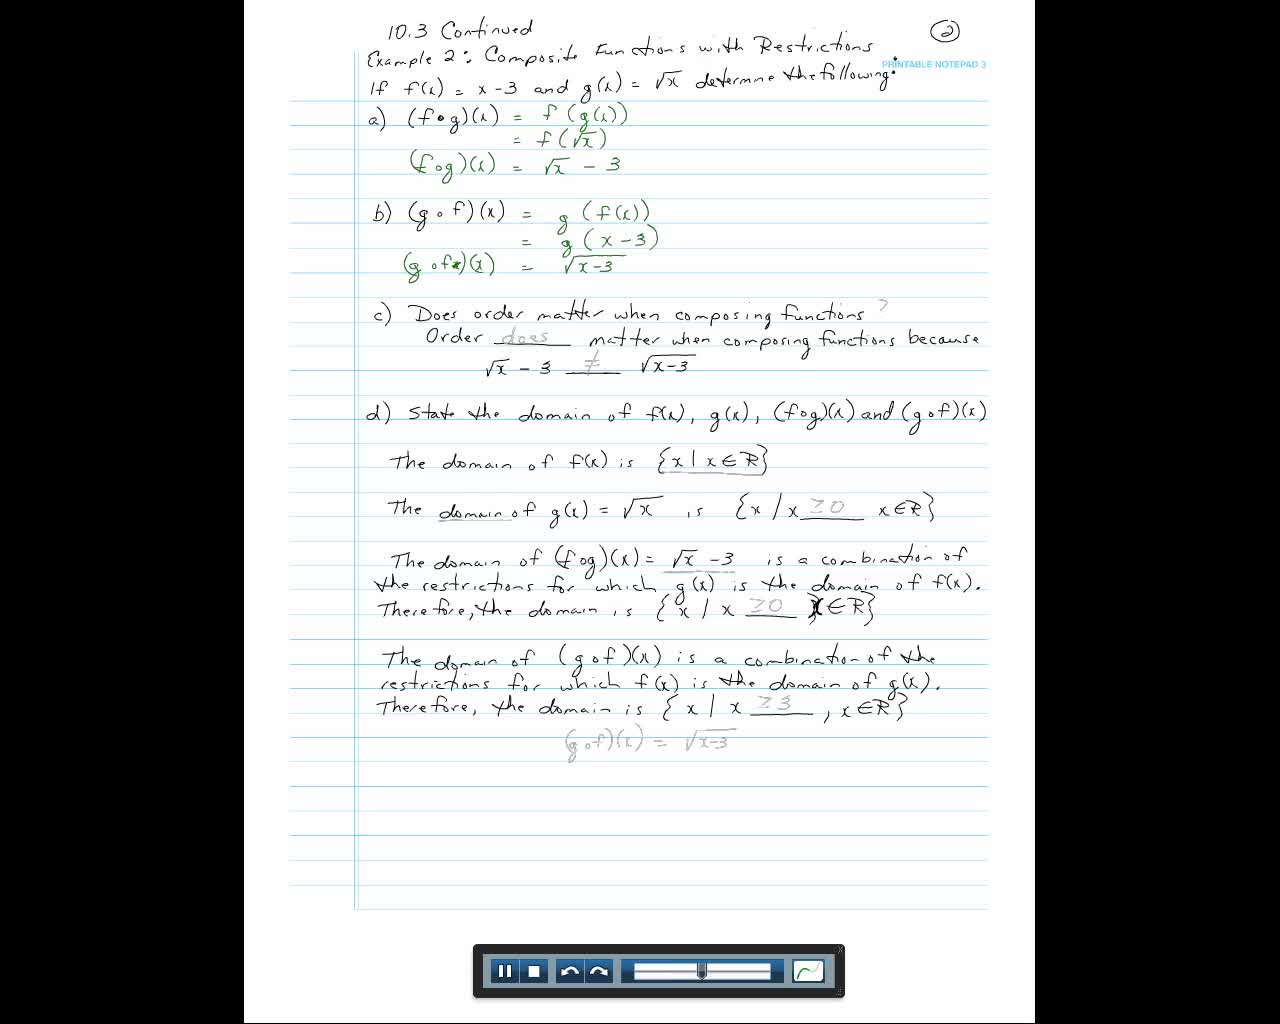 10.3 Continued
2
Example 2: Composite Functions with Restrictions
PRINTABLE NOTEPAD 3
If f(x) = x - 3 and g(x) = √x determine the following:
a) (f∘g)(x) = f(g(x))
= f(√x)
(f∘g)(x) = √x - 3
b) (g∘f)(x) = g(f(x))
= g(x-3)
(g∘f)(x) = √(x-3)
c) Does order matter when composing functions?
Order does matter when composing functions because
√x - 3 ≠ √(x-3)
d) State the domain of f(x), g(x), (f∘g)(x) and (g∘f)(x)
The domain of f(x) is {x | x ∈ R}
The domain of g(x) = √x is {x / x ≥0 x ∈ R}
The domain of (f∘g)(x) = √x - 3 is a combination of
the restrictions for which g(x) is the domain of f(x).
Therefore, the domain is {x / x ≥0 x ∈ R}
The domain of (g∘f)(x) is a combination of the
restrictions for which f(x) is the domain of g(x).
Therefore, the domain is {x | x ≥3, x ∈ R}
(g∘f)(x) = √(x-3)